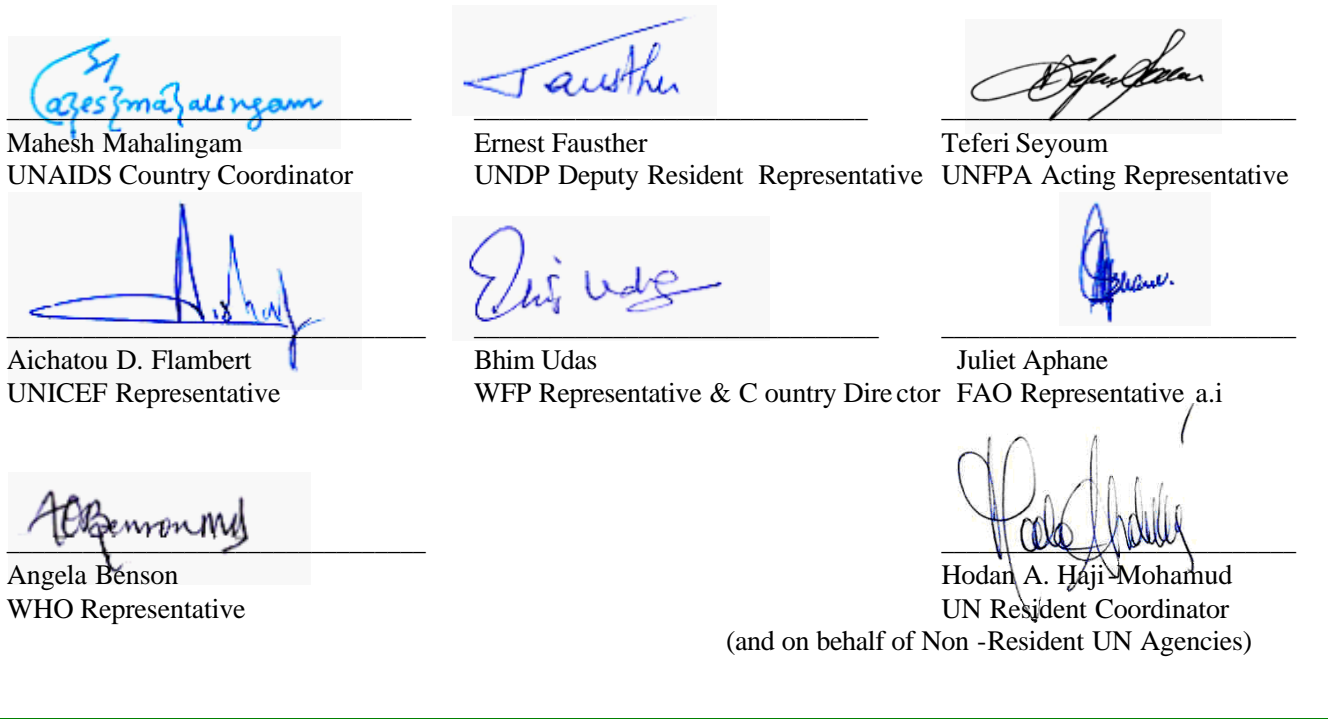 Mahesh Mahalingam
UNAIDS Country Coordinator
Ernest Fausther
UNDP Deputy Resident Representative
Teferi Seyoum
UNFPA Acting Representative
Aichatou D. Flambert
UNICEF Representative
Bhim Udas
WFP Representative & C ountry Dire ctor
Juliet Aphane
FAO Representative a.i
Angela Benson
WHO Representative
Hodan A. Haji-Mohamud
UN Resident Coordinator
(and on behalf of Non -Resident UN Agencies)